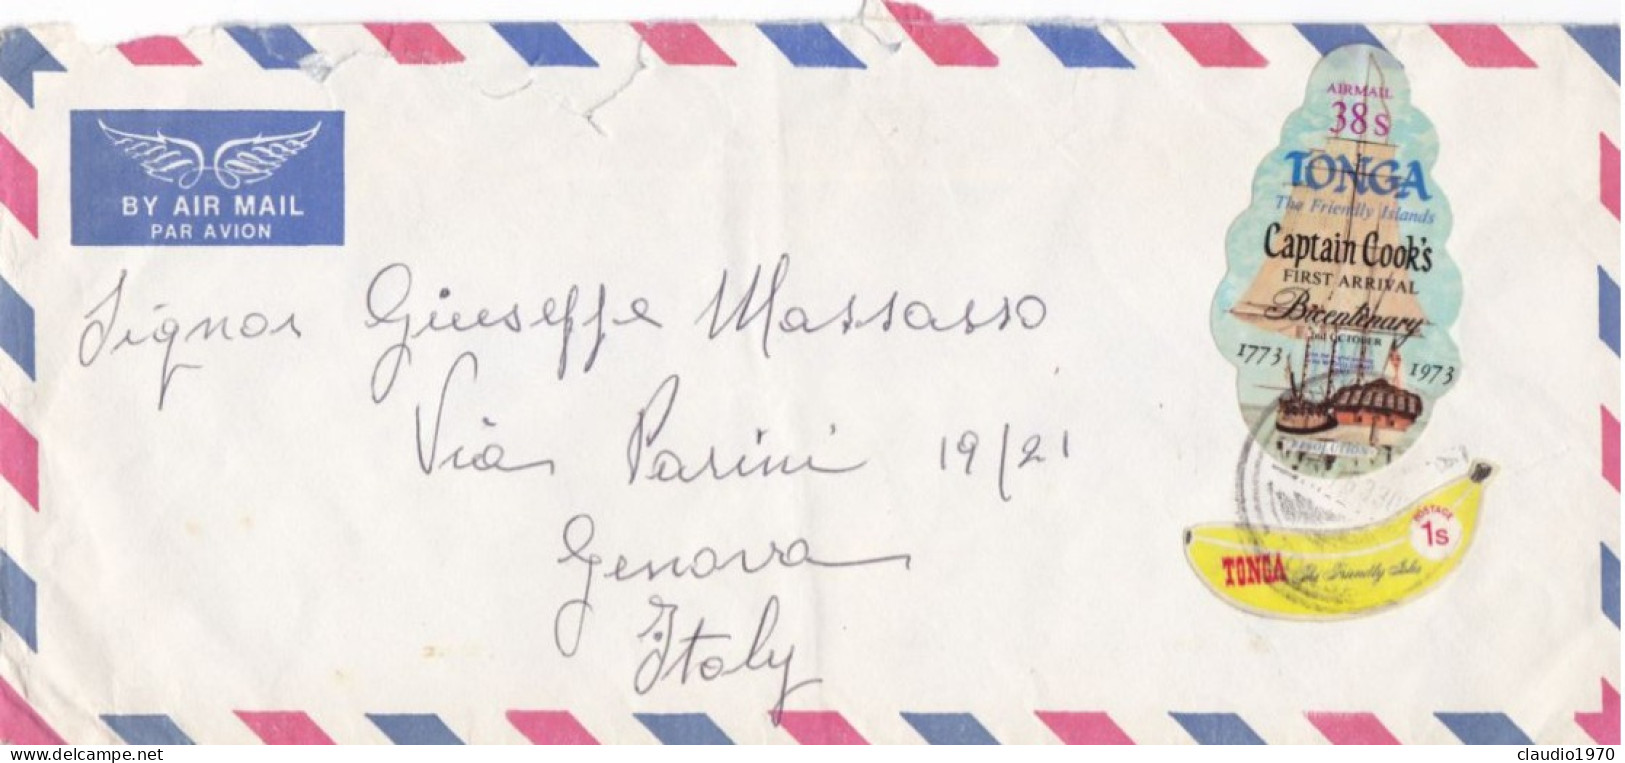 BY AIR MAIL
PAR AVION
Signor Giuseppe Massasso
Via Parini 19/21
Genova
Italy
AIRMAIL
38s
TONGA
The Friendly Islands
Captain Cook's
FIRST ARRIVAL
Bicentenary
2nd OCTOBER
1773 1973
RESOLUTION
POSTAGE
1s
TONGA The Friendly Isles
www.delcampe.net
claudio1970